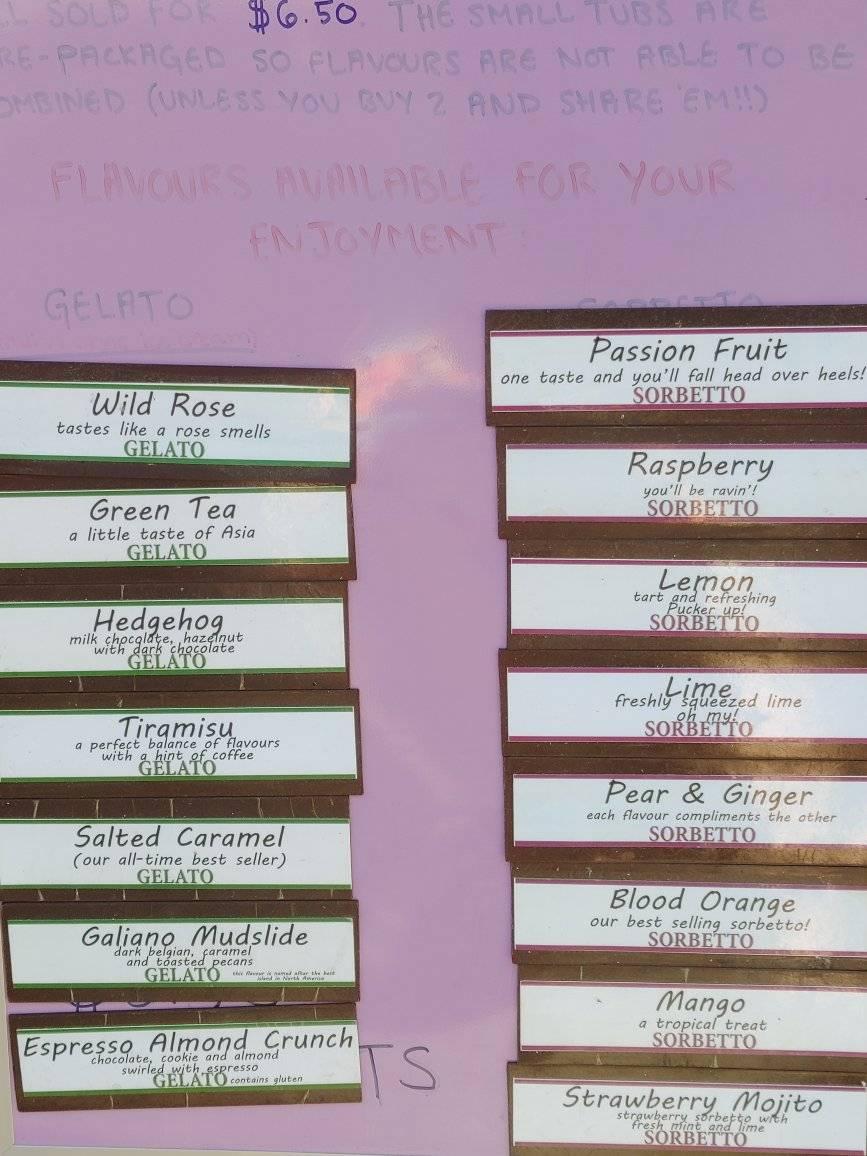 SOLD FOR $6.50. THE SMALL TUBS ARE
RE-PACKAGED SO FLAVOURS ARE NOT ABLE TO BE
OMBINED (UNLESS YOU BUY 2 AND SHARE 'EM!!)
FLAVOURS AVAILABLE FOR YOUR
ENJOYMENT:
GELATO
Wild Rose
tastes like a rose smells
GELATO
Green Tea
a little taste of Asia
GELATO
Hedgehog
milk chocolate, hazelnut
with dark chocolate
GELATO
Tiramisu
a perfect balance of flavours
with a hint of coffee
GELATO
Salted Caramel
(our all-time best seller)
GELATO
Galiano Mudslide
dark belgian, caramel
and toasted pecans
GELATO
this flavour is named after the best
island in North America
Espresso Almond Crunch
chocolate, cookie and almond
swirled with espresso
GELATO contains gluten
TS
SORBETTO
Passion Fruit
one taste and you'll fall head over heels!
SORBETTO
Raspberry
you'll be ravin'!
SORBETTO
Lemon
tart and refreshing
Pucker up!
SORBETTO
Lime
freshly squeezed lime
oh my!
SORBETTO
Pear & Ginger
each flavour compliments the other
SORBETTO
Blood Orange
our best selling sorbetto!
SORBETTO
Mango
a tropical treat
SORBETTO
Strawberry Mojito
strawberry sorbetto with
fresh mint and lime
SORBETTO